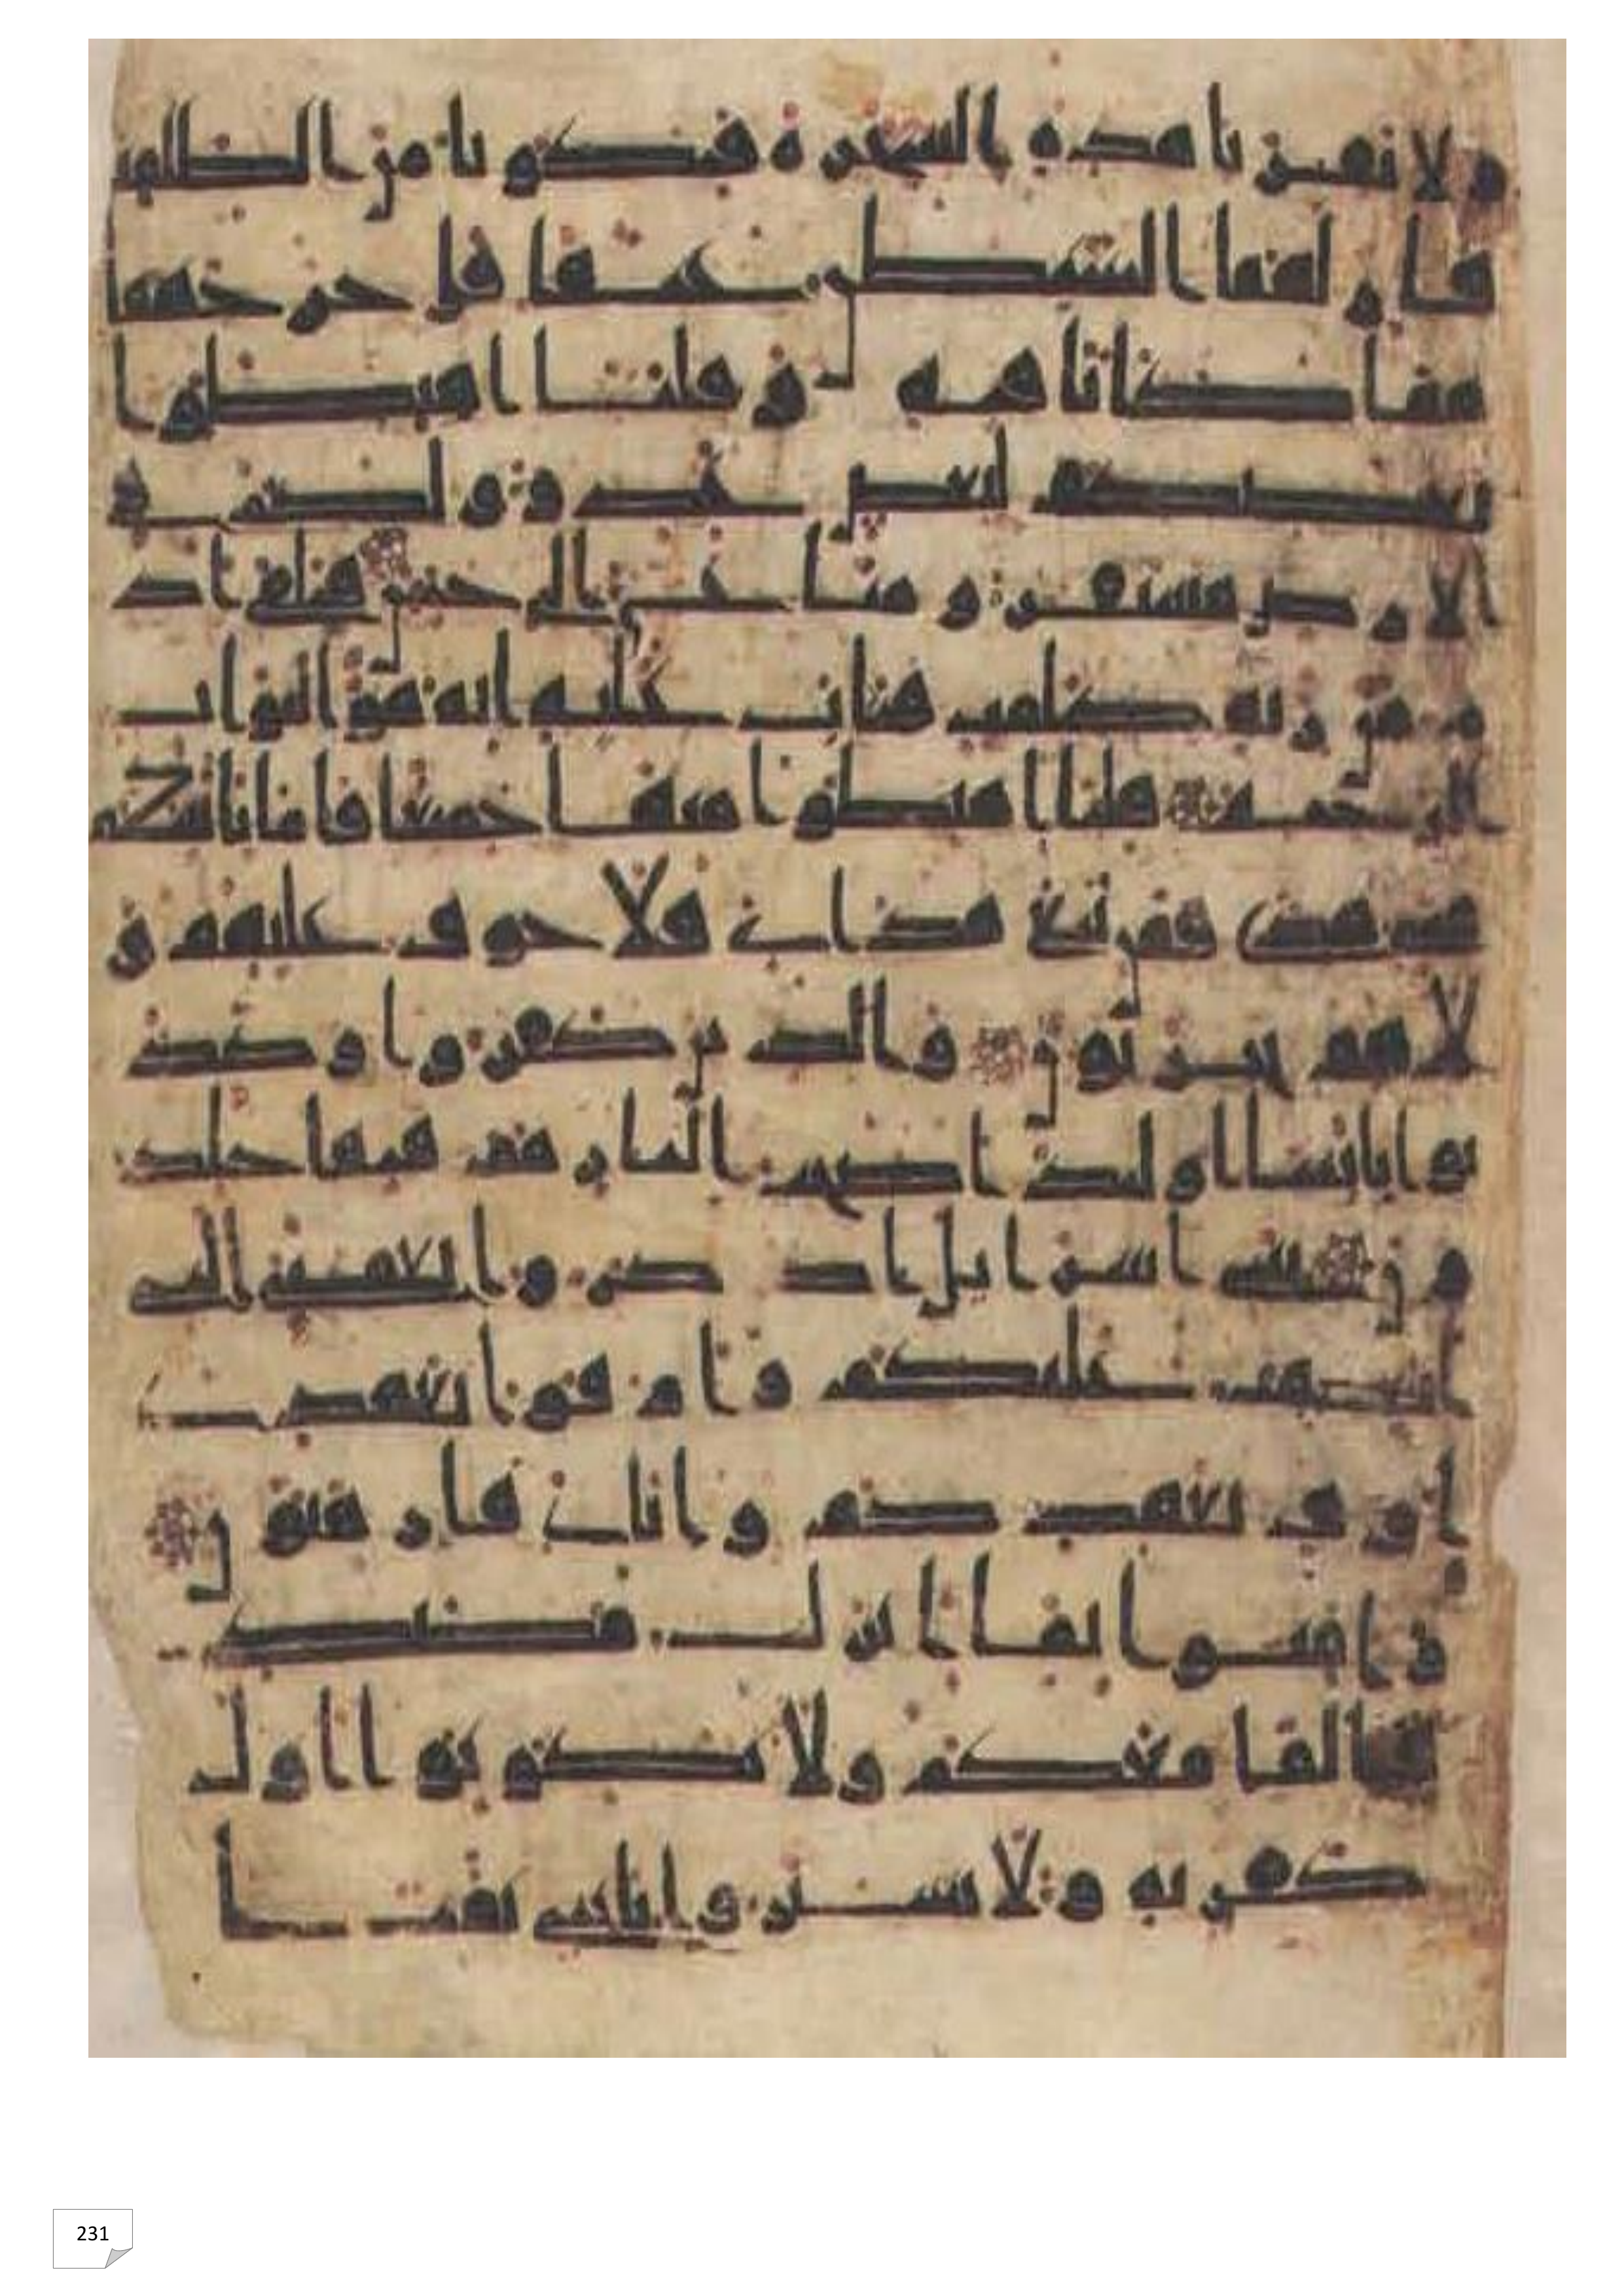 ولا تقربا هذه الشجرة فتكونا من الظلمين
فازلهما الشيطن عنها فاخرجهما
مما كانا فيه وقلنا اهبطوا
بعضكم لبعض عدو ولكم في
الارض مستقر ومتاع الى حين فتلقى اد
م من ربه كلمت فتاب عليه انه هو التواب
الرحيم قلنا اهبطوا منها جميعا فاما ياتينكم
منى هدى فمن تبع هداى فلا خوف عليهم و
لا هم يحزنون والذين كفروا وكذ
بوا بايتنا اولئك اصحب النار هم فيها خلد
ون يبنى اسرايل اذكروا نعمتى التى
انعمت عليكم واوفوا بعهدى
اوف بعهدكم واياى فارهبون
وامنوا بما انزلت مصدقا
لما معكم ولا تكونوا اول
كافر به ولا تشتروا بايتى ثمنا